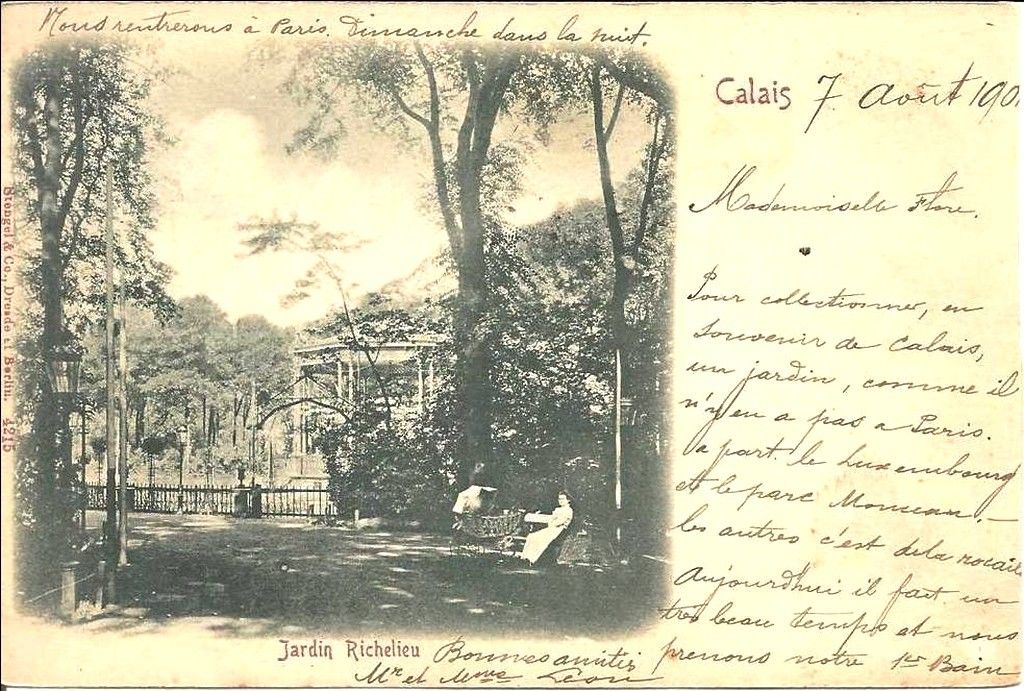 Nous rentrerons à Paris. Dimanche dans la nuit.
Calais 7 Août 190
Mademoiselle Flore.
Pour collectionner, en
souvenir de Calais,
un jardin, comme il
n'y en a pas à Paris.
à part le Luxembourg
et le parc Monceau.—
les autres c'est de la rocaill
Aujourd'hui il fait un
très beau temps et nous
prenons notre 1er Bain
Bonnes amitiés
Mr et Mme Léon
Jardin Richelieu
Stengel & Co., Dresde et Berlin. 4215